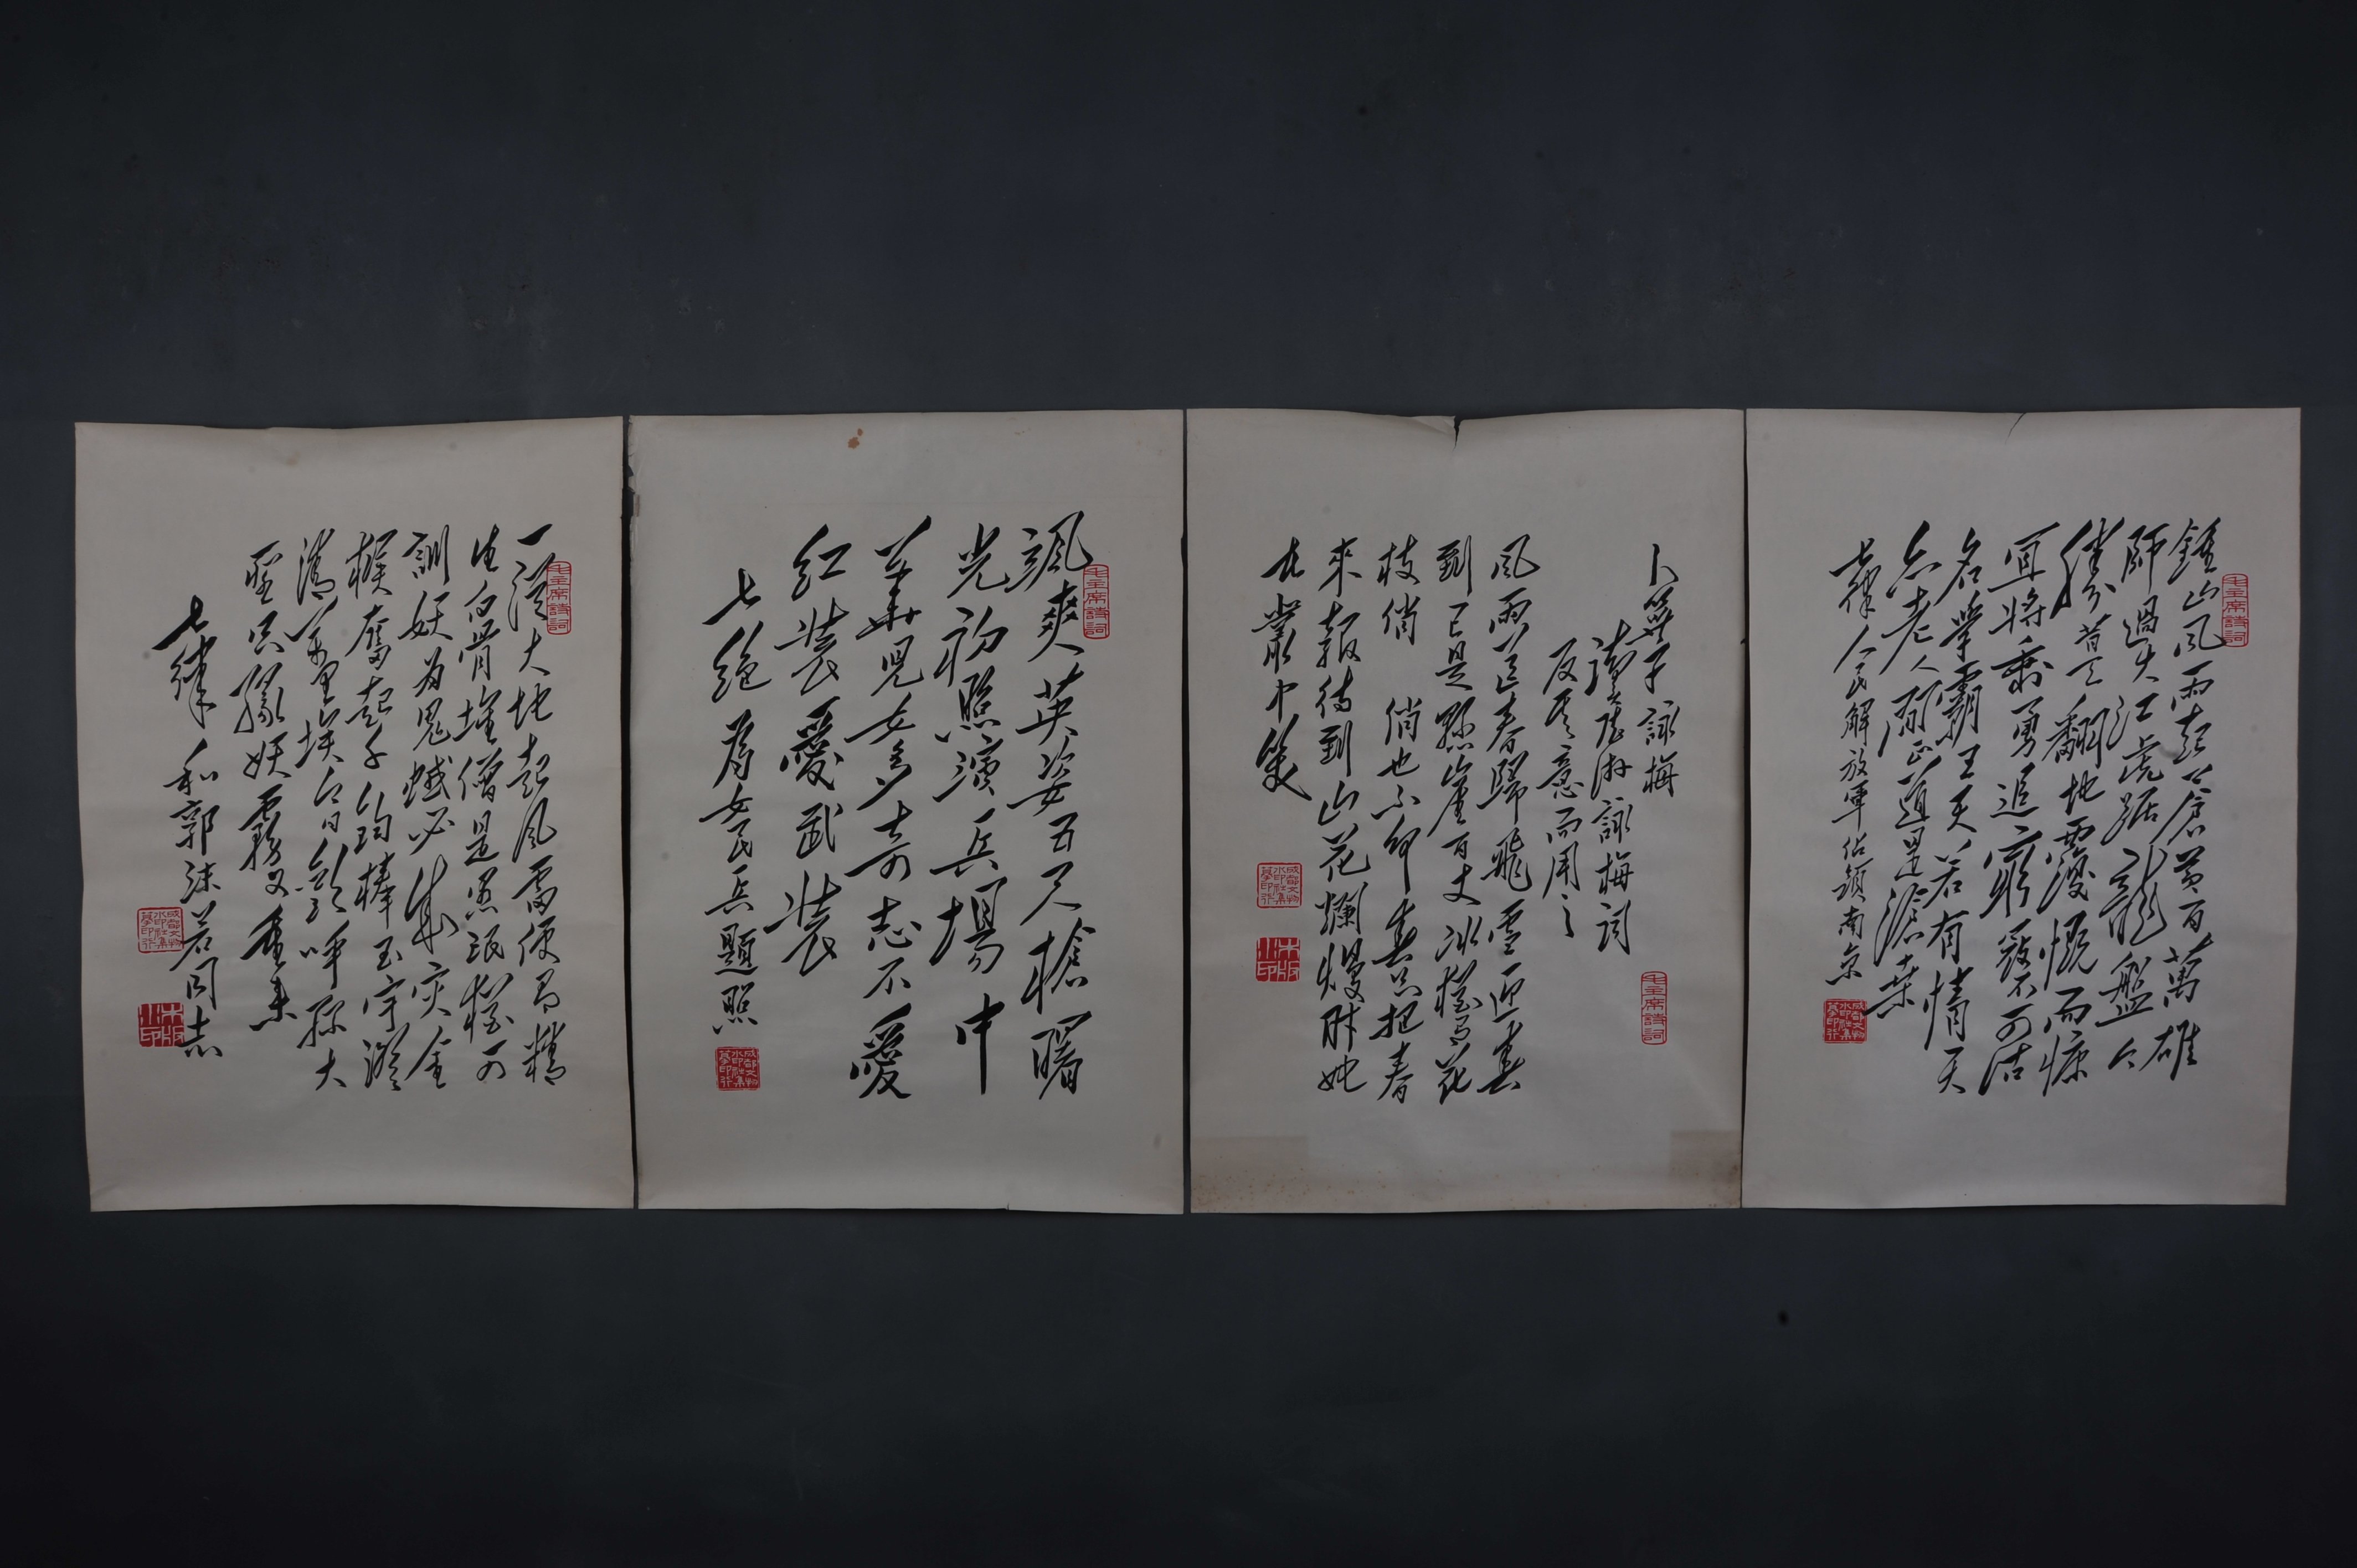 毛主席詩詞
鍾山风雨起蒼黃百萬雄
師過大江虎踞龍盤今
勝昔天翻地覆慨而慷
宜將剩勇追窮寇不可沽
名學霸王天若有情天
亦老人間正道是滄桑
七律 人民解放軍佔領南京
毛主席詩詞
卜算子 詠梅
讀陸游詠梅詞
反其意而用之
风雨送春歸飛雪迎春
到已是懸崖百丈冰猶有花
枝俏 俏也不爭春只把春
來報待到山花爛熳時她
在叢中笑
毛主席詩詞
颯爽英姿五尺槍曙
光初照演兵場中
華兒女多奇志不愛
紅裝愛武裝
七絕 為女民兵題照
毛主席詩詞
一從大地起风雷便有精
生白骨堆僧是愚氓猶可
訓妖為鬼蜮必成災金
猴奮起千鈞棒玉宇澄
清萬里埃今日歡呼孫大
聖只緣妖霧又重來
七律 和郭沫若同志